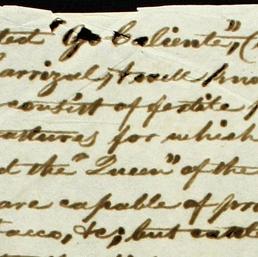 "Ojo Caliente",
Carrizal, & well kno
consist of fertile
pastures for which
d the "Queen" of the
are capable of pro
acco, &c; but cattle